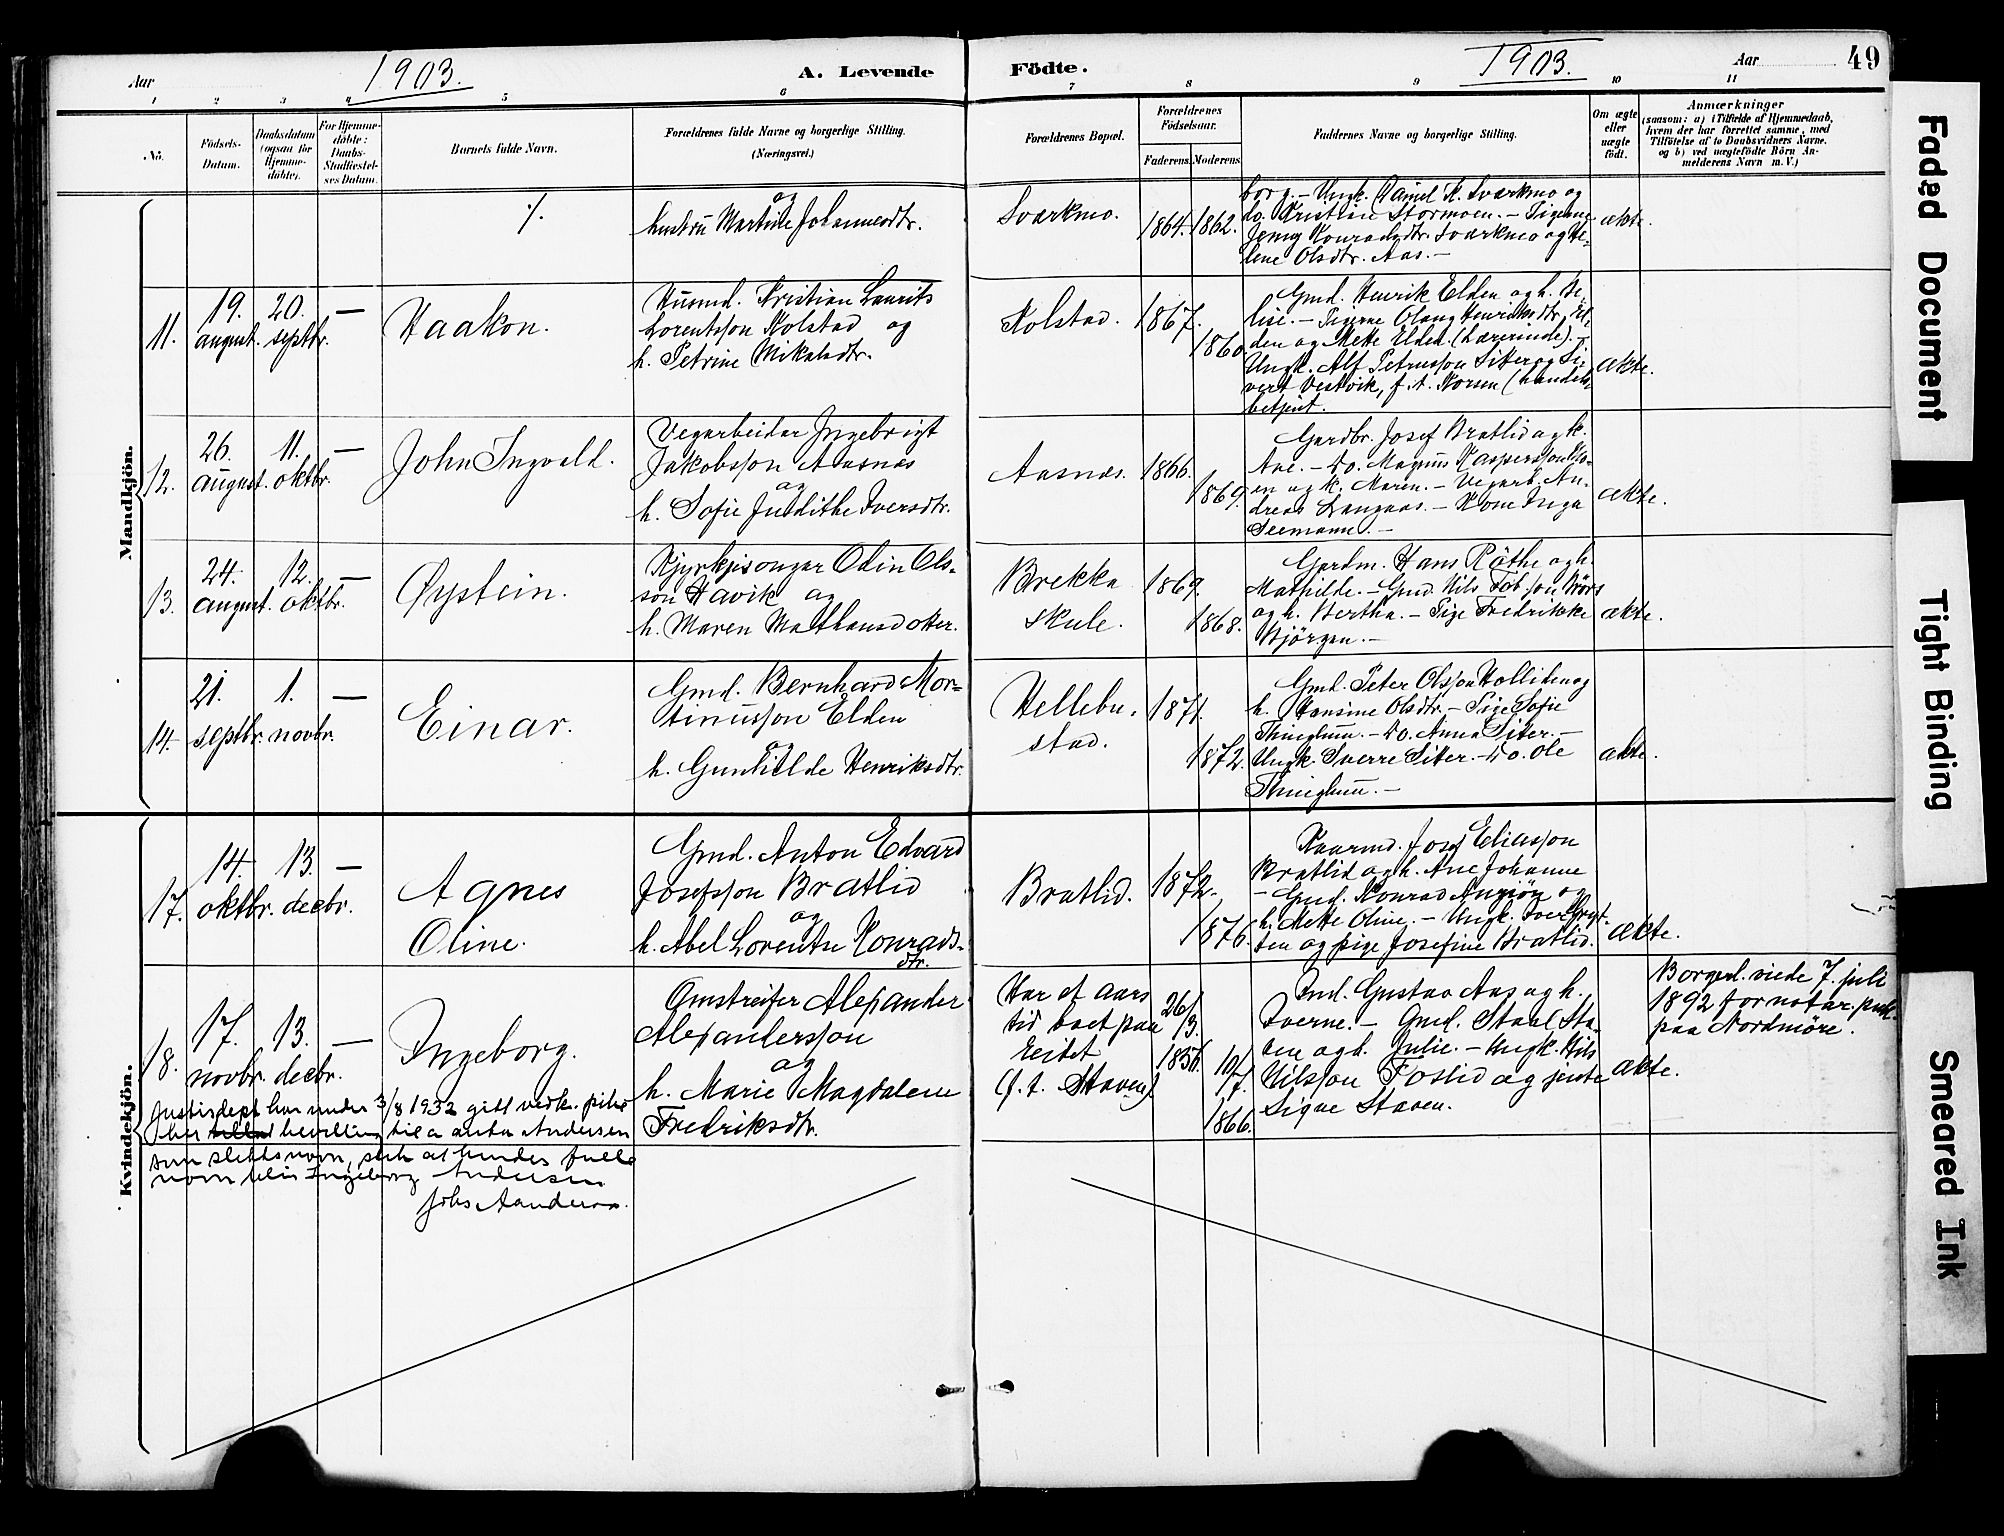 Aar 1903. A. Levende
Födte. 1903. Aar 49
1 2 3 4 5 6
7 8 9 10 11
No.
Födsels-
Datum.
Daabsdatum
(ogsaa for
Hjemme-
döbte).
For Hjemme-
döbte:
Daabs-
Stadfæstel-
ses Datum.
Barnets fulde Navn.
Forældrenes fulde Navne og borgerlige Stilling.
(Næringsvei.)
Forældrenes Bopæl.
Forældrenes
Födselsaar.
Faderens. Moderens.
Faddernes Navne og borgerlige Stilling.
Om ægte
eller
uægte
födt.
Anmærkninger
(saasom: a) i Tilfælde af Hjemmedaab,
hvem der har forrettet samme, med
Tilföielse af to Daabsvidners Navne.
og b) ved uægtefödte Börn An-
melderens Navn m. V.)
Mandkjön.
./.
og
hustru Martine Johannesdtr.
Sværkmo.
1864. 1862.
borg. – Ungk. Daniel K. Sværkmo og
do. Kristian Stormoen. – Pigerne
Jenny Konradsdtr. Sværkmo og He-
lene Olsdtr. Aas. –
ækte.
11.
19.
august.
20.
septbr.
—
Haakon.
Husmd. Kristian Laurits
Lorentsson Kolstad og
h. Petrine Mikalsdtr.
Kolstad.
1867.
1860
Gmd. Henrik Elden og h. Be-
lise. – Pigerne Olaug Henriksdtr. El-
den og Mette Elden (Lærerinde). –
Ungk. Alf Petrusson Sitter og Si-
vert Vestvik, f. t. Korsen (handels-
betjent.
ækte.
12.
26.
august.
11.
oktbr.
—
John Ingvald.
Vegarbeidar Ingebrigt
Jakobsson Aasnes
og
h. Sofie Judithe Iversdtr.
Aasnes.
1866.
1869.
Gardbr. Josef Bratlid og k.
Ane. – Do. Magnus Kaspersson Mo-
en og k. Maren. – Vegarb. An-
dreas Langaas. – Kone Inga
Seemann. –
ækte.
13.
24.
august.
12.
oktbr.
—
Øystein.
Kjyrkjesongar Odin Ols-
son Havik og
h. Maren Mathansdotter.
Brekka
skule.
1869.
1868.
Gardm. Hans Röthe og h.
Mathilde. – Gmd. Nils Tob.son Börs
og h. Bertha. – Pige Fredrikke
Björgan. –
ækte.
14.
21.
septbr.
1.
novbr.
—
Einar.
Gmd. Bernhard Mor-
tinusson Elden
og
h. Gunhilde Henriksdtr.
Hellebu-
stad.
1871.
1872.
Gmd. Peter Olsson Holliden og
h. Hansine Olsdtr. – Pige Sofie
Thinghum. – Do. Anna Sitter. –
Ungk. Sverre Sitter. – Do. Ole
Thinghum. –
ækte.
Kvindekjön.
17.
14.
oktbr.
13.
decbr.
—
Agnes
Oline.
Gmd. Anton Edvard
Josefsson Bratlid
og
h. Abel Lorentse Konrads-
dtr.
Bratlid.
1872.
1876.
Kaarmd. Josef Eliasson
Bratlid og h. Ane Johanne
– Gmd. Konrad
h. Mette Oline. – Ungk. Iver
ten og pige Josefine Bratlid.
ækte.
18.
17.
novbr.
13.
decbr.
—
Ingeborg.
Omstreifer Alexander
Alexandersson
og
h. Marie Magdalene
Fredriksdtr.
Har et aars
tid boet paa
Leitet
(f. t. Staven).
26/
3.
1856.
10/
7.
1866.
Ind. Gustav Aas og h.
Iverne. – Gmd. Staal Sta-
ven og h. Julie. – Ungk. Nils
Nilsson Foslid og jente
Signe Staven.
ækte.
Borgerl. viede 7. juli
1892 for notar. publ.
paa Nordmöre.
Justisdept har under 3/8 1932 gitt vedk. pike
her bevilling til a anta Andersen
som slektsnavn, slik at hendes fulle
navn blir Ingeborg Andersen
Johs Aanderaa.
Faded Document
Tight Binding
Smeared Ink